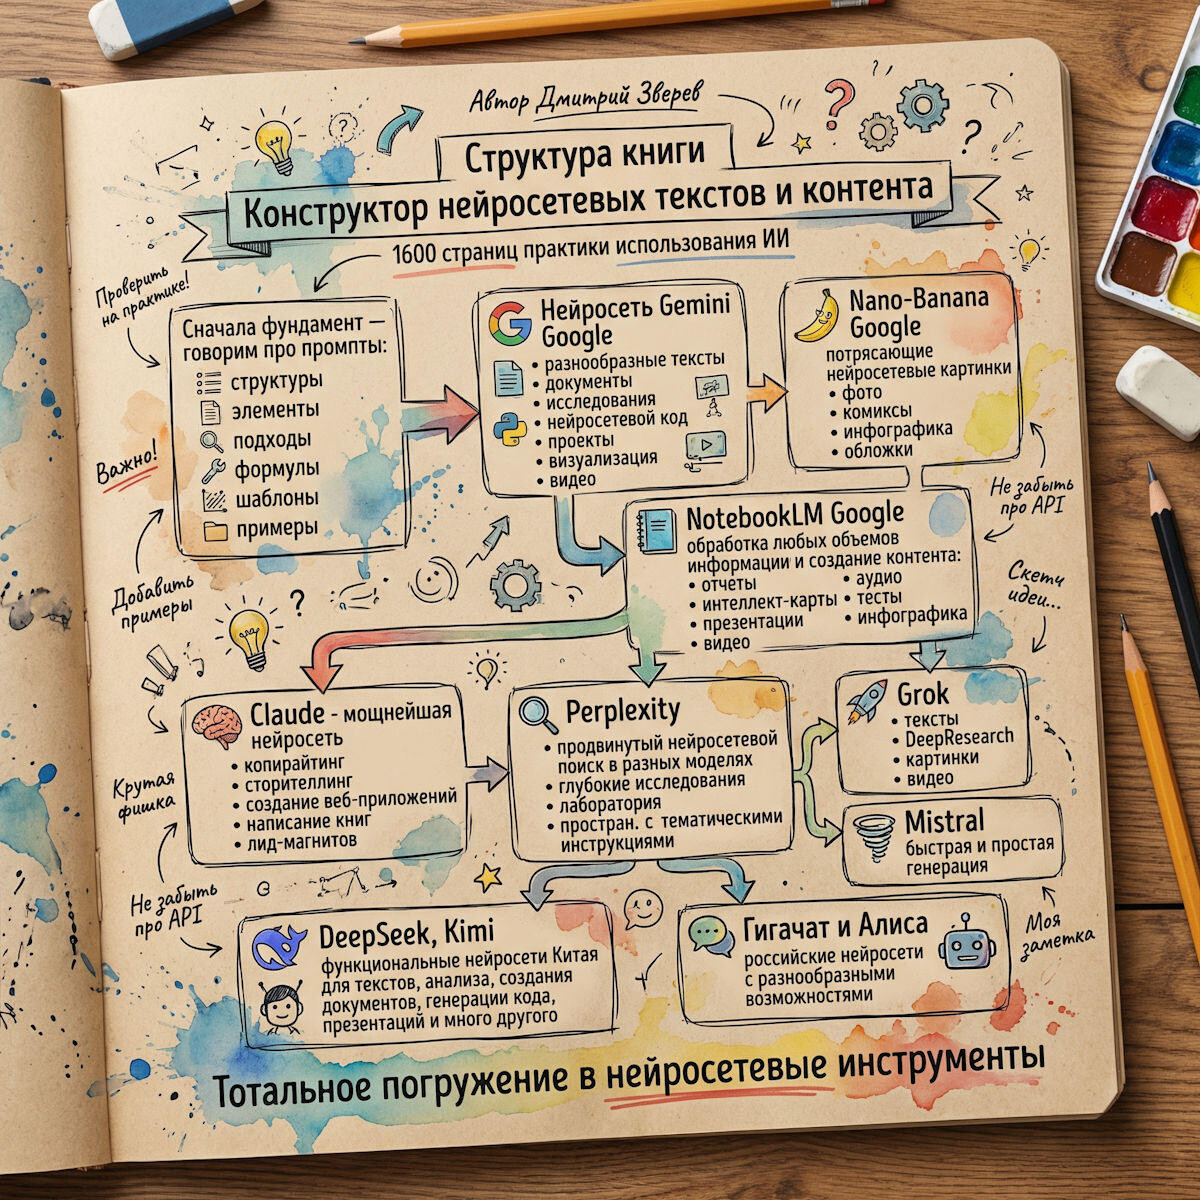 Автор Дмитрий Зверев
Структура книги
Конструктор нейросетевых текстов и контента
1600 страниц практики использования ИИ
Проверить
на практике!
Важно!
Добавить
примеры
Сначала фундамент —
говорим про промпты:
структуры
элементы
подходы
формулы
шаблоны
примеры
Нейросеть Gemini
Google
• разнообразные тексты
• документы
• исследования
• нейросетевой код
• проекты
• визуализация
• видео
Nano-Banana
Google
потрясающие
нейросетевые картинки
• фото
• комиксы
• инфографика
• обложки
Не забыть
про API
Скетч
идеи...
NotebookLM Google
обработка любых объемов
информации и создание контента:
• отчеты
• интеллект-карты
• презентации
• видео
• аудио
• тесты
• инфографика
Крутая
фишка
Не забыть
про API
Claude - мощнейшая
нейросеть
• копирайтинг
• сторителлинг
• создание веб-приложений
• написание книг
• лид-магнитов
Perplexity
• продвинутый нейросетевой
поиск в разных моделях
• глубокие исследования
• лаборатория
• простран. с тематическими
инструкциями
Grok
• тексты
• DeepResearch
• картинки
• видео
Mistral
быстрая и простая
генерация
Моя
заметка
DeepSeek, Kimi
функциональные нейросети Китая
для текстов, анализа, создания
документов, генерации кода,
презентаций и много другого
Гигачат и Алиса
российские нейросети
с разнообразными
возможностями
Тотальное погружение в нейросетевые инструменты